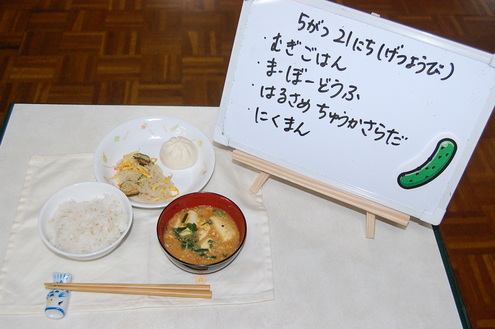 5がつ 21にち(げつようび)
・むぎごはん
・まーぼーどうふ
・はるさめ ちゅうかさらだ
・にくまん